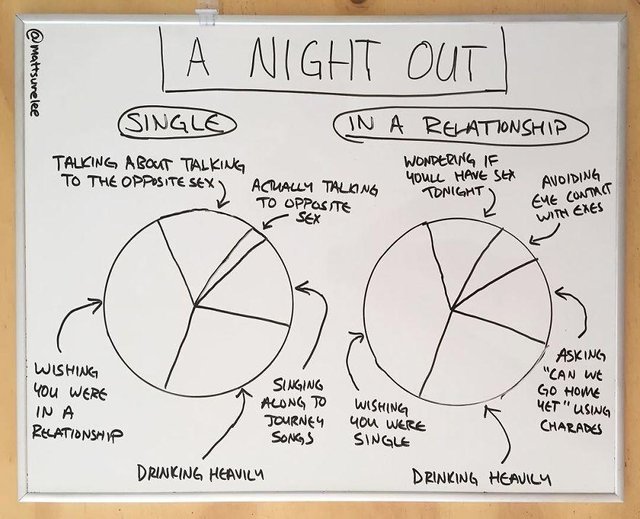 @mattsurelee
A NIGHT OUT
SINGLE
TALKING ABOUT TALKING
TO THE OPPOSITE SEX
ACTUALLY TALKING
TO OPPOSITE
SEX
WISHING
YOU WERE
IN A
RELATIONSHIP
SINGING
ALONG TO
JOURNEY
SONGS
DRINKING HEAVILY
IN A RELATIONSHIP
WONDERING IF
YOULL HAVE SEX
TONIGHT
AVOIDING
EYE CONTACT
WITH EXES
WISHING
YOU WERE
SINGLE
ASKING
"CAN WE
GO HOME
YET" USING
CHARADES
DRINKING HEAVILY